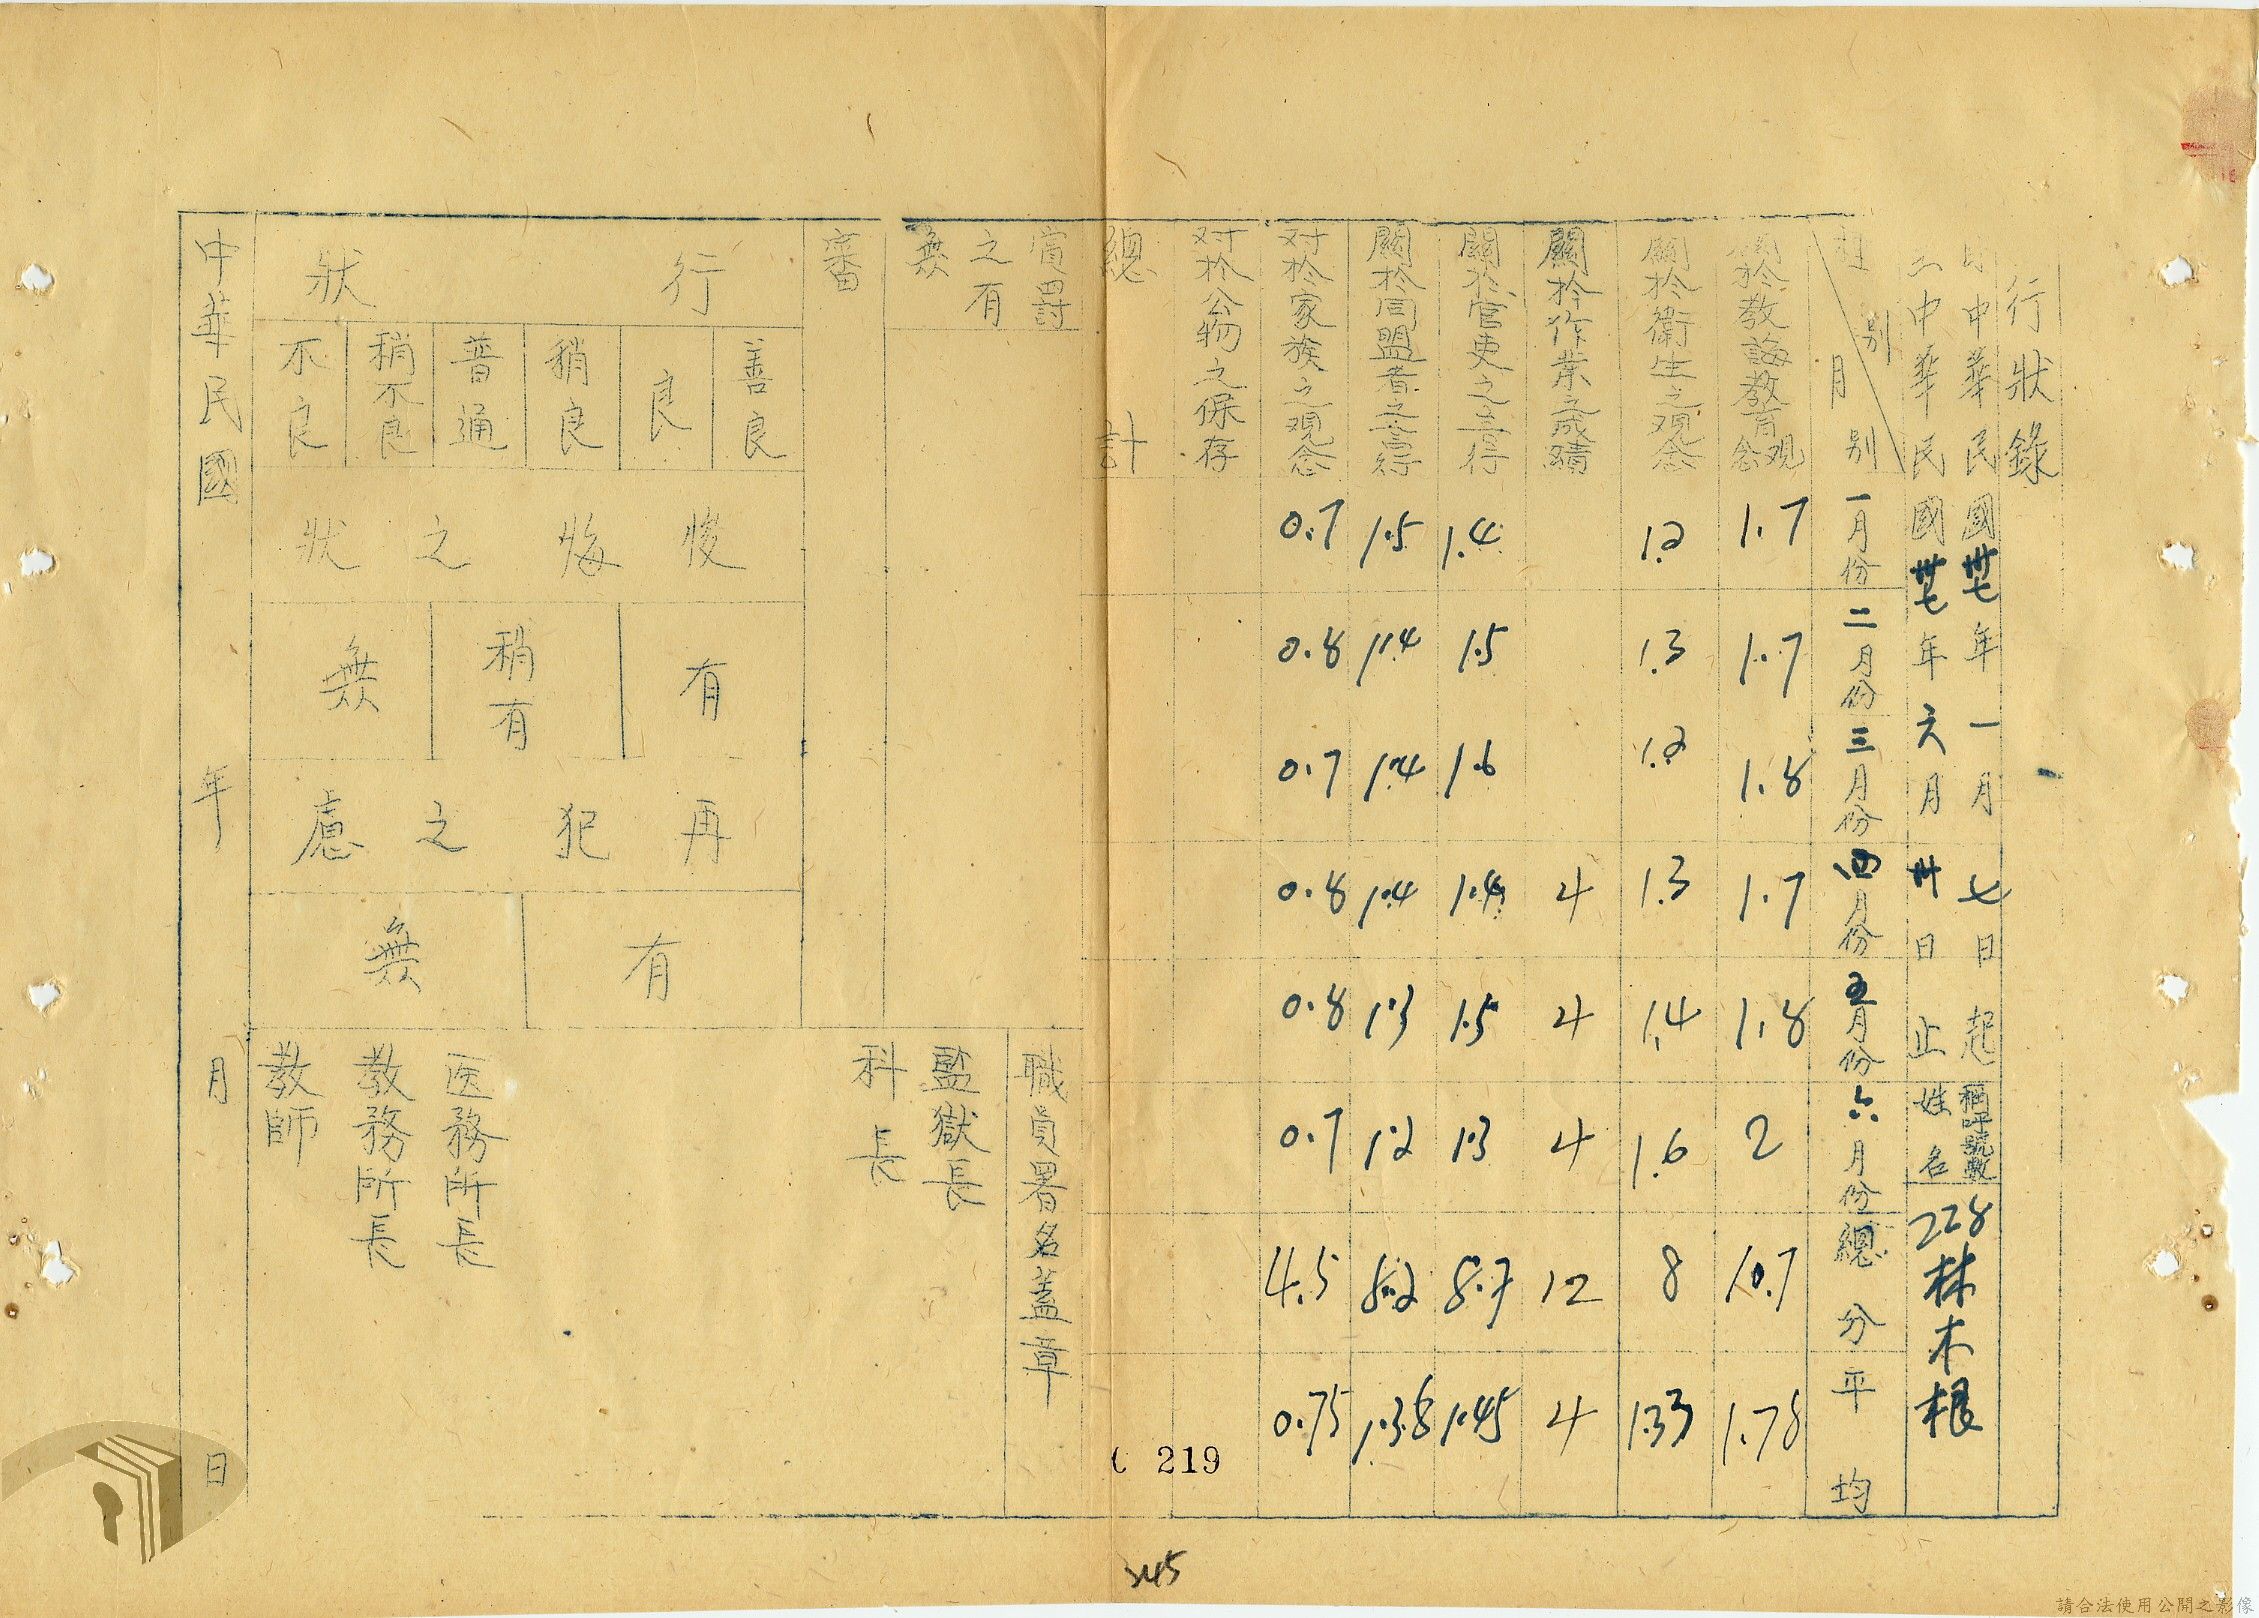 行狀錄
自中華民國卅七年一月七日起
稱呼號數
228
至中華民國卅七年六月卅日止
姓名
林木根
種別
月別
一月份
二月份
三月份
四月份
五月份
六月份
總分
平均
關於教誨教育觀念
1.7
1.7
1.8
1.7
1.8
2
10.7
1.78
關於衛生之觀念
1.2
1.3
1.2
1.3
1.4
1.6
8
1.33
關於作業之成績
4
4
4
12
4
關於官吏之言行
1.4
1.5
1.6
1.4
1.5
1.3
8.7
1.45
關於同盟者之言行
1.5
1.4
1.4
1.4
1.3
1.2
8.2
1.38
对於家族之觀念
0.7
0.8
0.7
0.8
0.8
0.7
4.5
0.75
对於公物之保存
總計
賞罰之有無
審
行狀
善良
良
稍良
普通
稍不良
不良
悛悔之狀
有
稍有
無
再犯之慮
有
無
職員署名蓋章
監獄長
科長
医務所長
教務所長
教師
中華民國 年 月 日
219
345
請合法使用公開之影像